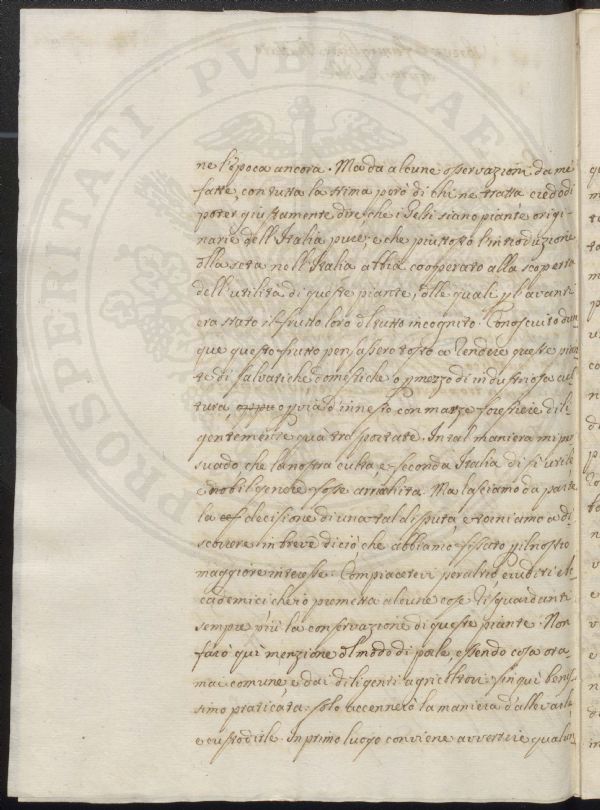 PROSPERITATI PVBLICAE
ne l'época ancora. Ma da alcune osservazioni da me
fatte, con tutta la stima però di chi ne tratta credo di
poter giustamente dire che i Gelsi siano piante origi-
narie dell'Italia pure, e che piuttosto l'introduzione
della seta nell'Italia abbia cooperato alla scoperta
dell'utilità di queste piante, delle quali pl'avanti
era stato il frutto loro del tutto incognito. Conosciuto dun
que questo frutto pensassero tosto a rendere queste pian
te di salvatiche domestiche o p mezzo di industriosa cul
tura, o p via d'innesto con marze forestiere dili
gentemente quà trasportate. In tal maniera mi per
suado, che la nostra culta, e feconda Italia di sì utile
e nobil genere fosse arrichita. Ma lasciamo da parte
la decisione di una tal disputa, e torniamo a di
scorrere in breve di ciò, che abbiamo fissato pil nostro
maggiore interesse. Compiacetevi peraltro, eruditi Ac
cademici ch'io premetta alcune cose risguardanti
sempre più la conservazione di queste piante. Non
farò quì menzione del modo di pale, essendo cosa ora
mai comune, e dai diligenti agricoltori fin quì benis-
simo praticata. Solo accennerò la maniera d'allevarle
e custodirle. In primo luogo conviene avvertire qualun